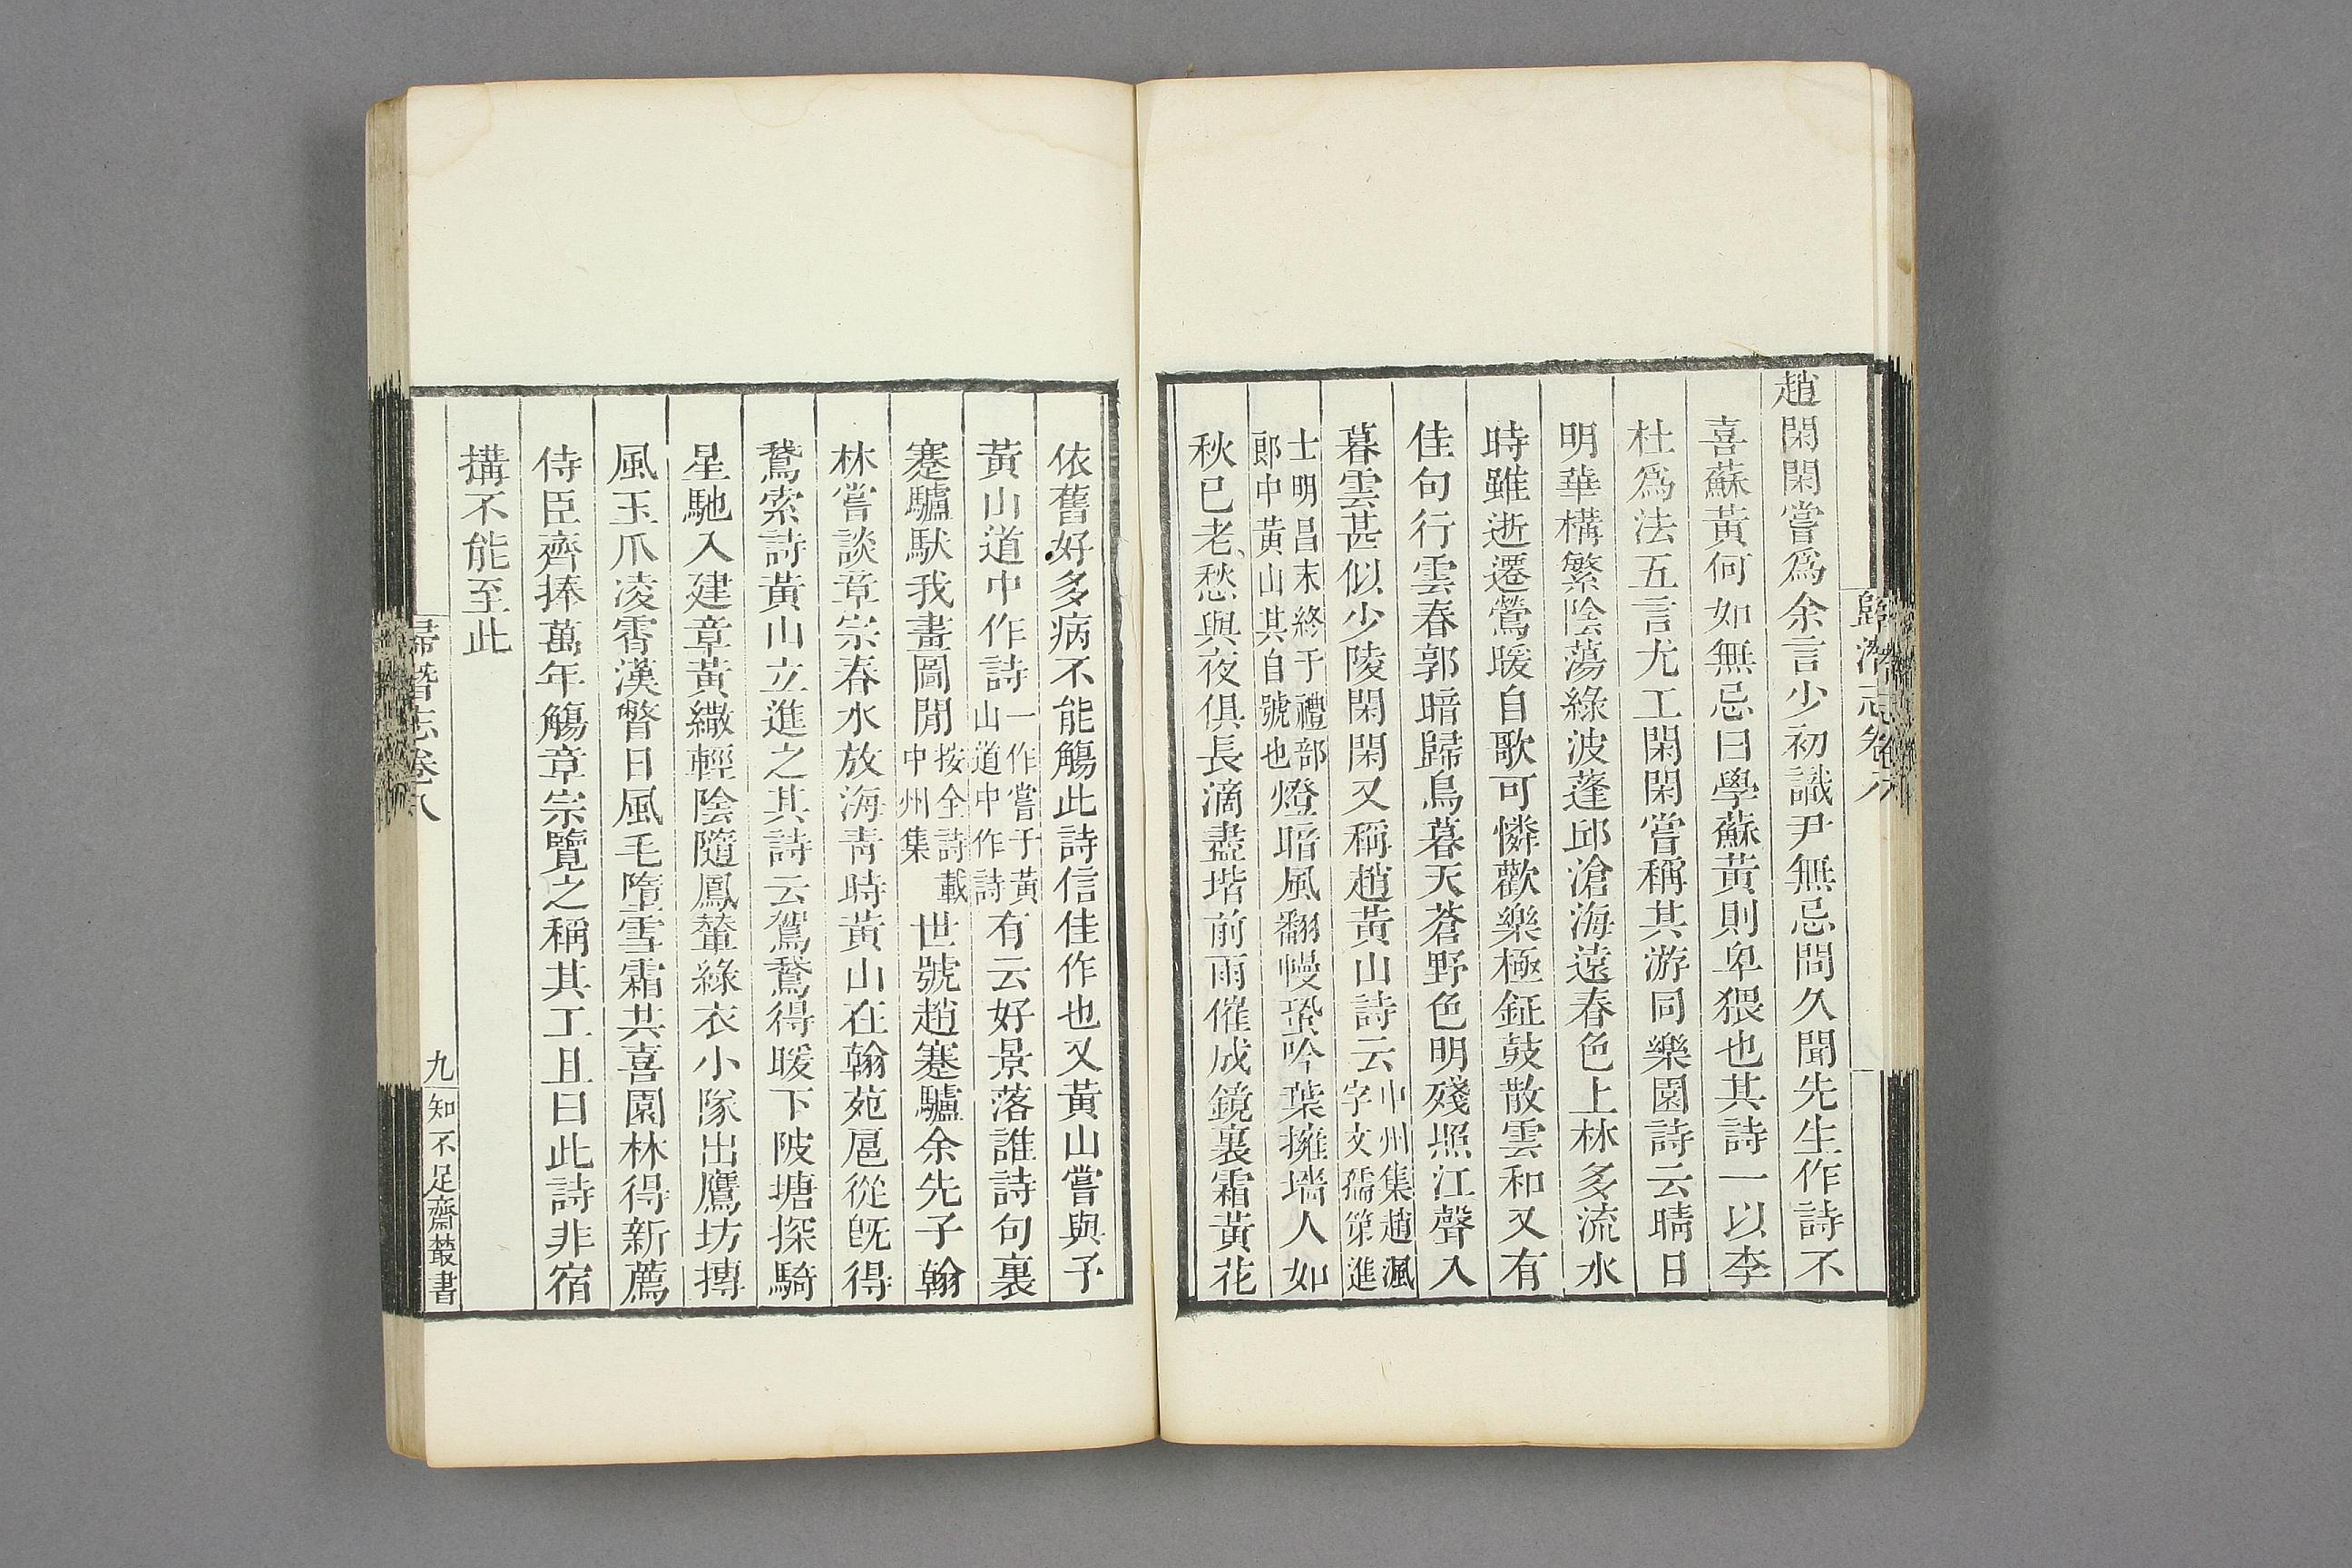 趙閑閑嘗爲余言少初識尹無忌問久聞先生作詩不
喜蘇黃何如無忌曰學蘇黃則卑猥也其詩一以李
杜爲法五言尤工閑閑嘗稱其游同樂園詩云晴日
明華構繁陰蕩綠波蓬邱滄海遠春色上林多流水
時雖逝遷鶯暖自歌可憐歡樂極鉦鼓散雲和又有
佳句行雲春郭暗歸鳥暮天蒼野色明殘照江聲入
暮雲甚似少陵閑閑又稱趙黃山詩云中州集趙渢字文孺第進
士明昌末終于禮部郞中黃山其自號也燈暗風翻幔蛩吟葉擁墻人如
秋已老愁與夜俱長滴盡堦前雨催成鏡裏霜黃花
依舊好多病不能觴此詩信佳作也又黃山嘗與予
黃山道中作詩一作嘗于黃山道中作詩有云好景落誰詩句裏
蹇驢馱我畫圖間按全詩載中州集世號趙蹇驢余先子翰
林嘗談章宗春水放海青時黃山在翰苑扈從旣得
鵞索詩黃山立進之其詩云駕鵞得暖下陂塘探騎
星馳入建章黃繖輕陰隨鳳輦綠衣小隊出鷹坊摶
風玉爪凌霄漢瞥日風毛墮雪霜共喜園林得新薦
侍臣齊捧萬年觴章宗覽之稱其工且曰此詩非宿
搆不能至此
歸潛志卷八
九
知不足齋叢書
歸潛志卷八